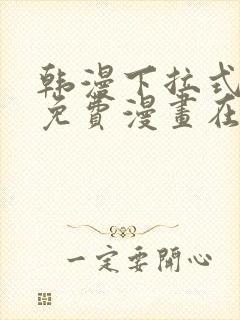 韩漫下拉式
免費漫畫在
一定要開心